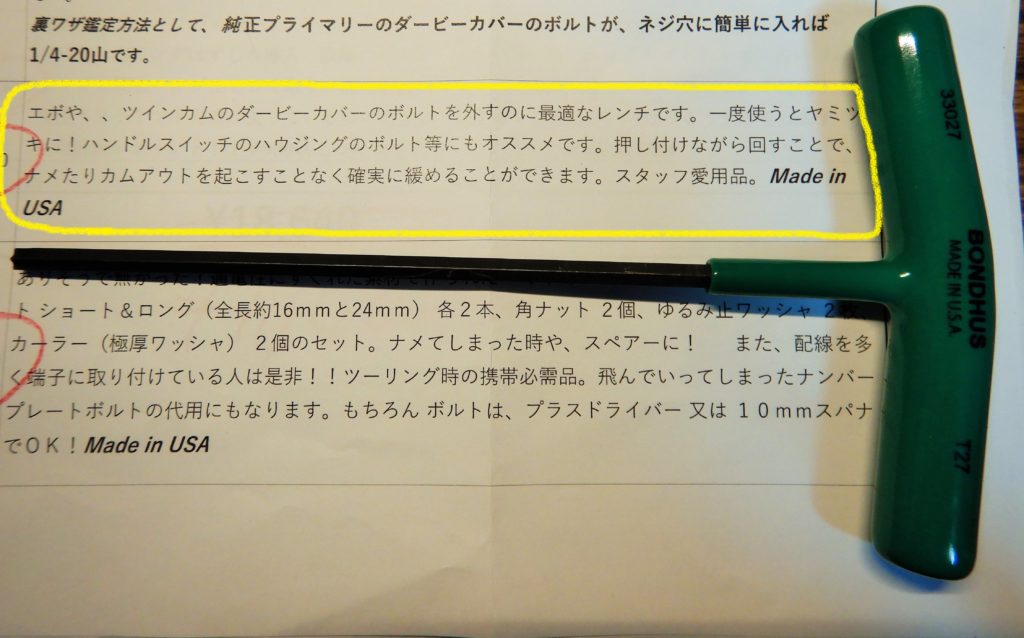 裏ワザ鑑定方法として、純正プライマリーのダービーカバーのボルトが、ネジ穴に簡単に入れば
1/4-20山です。
エボや、、ツインカムのダービーカバーのボルトを外すのに最適なレンチです。一度使うとヤミツ
キに！ハンドルスイッチのハウジングのボルト等にもオススメです。押し付けながら回すことで、
ナメたりカムアウトを起こすことなく確実に緩めることができます。スタッフ愛用品。Made in
USA
ありそうで無かった！
ト ショート＆ロング（全長約16ｍｍと24ｍｍ） 各２本、角ナット ２個、ゆるみ止ワッシャ ２枚、
カーラー（極厚ワッシャ） ２個のセット。ナメてしまった時や、スペアーに！ また、配線を多
く端子に取り付けている人は是非！！ツーリング時の携帯必需品。飛んでいってしまったナンバー
プレートボルトの代用にもなります。もちろん ボルトは、プラスドライバー 又は １０ｍｍスパナ
でＯＫ！Made in USA
33027
BONDHUS
MADE IN U.S.A.
T27